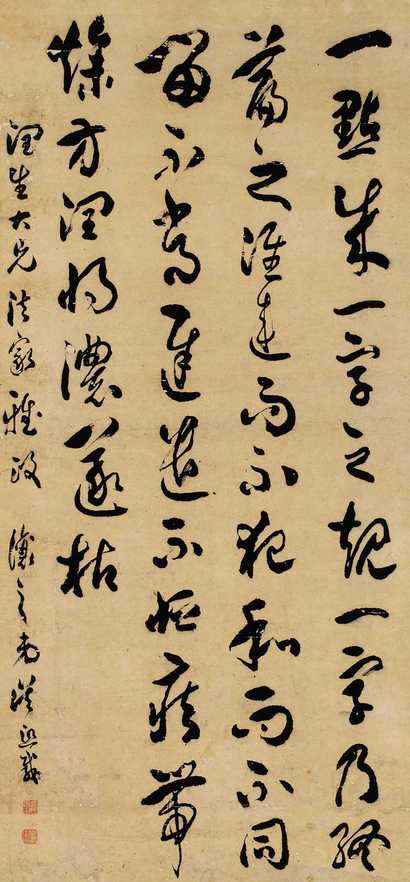 一點成一字之規一字乃終
篇之準違而不犯和而不同
留不常遲遣不恒疾帶
燥方潤將濃遂枯
潤生大兄法家雅政 讓之弟吳熙載